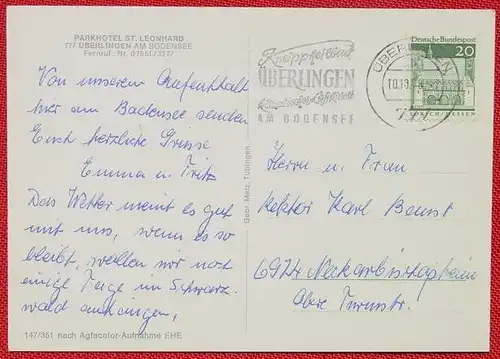 PARKHOTEL ST. LEONHARD
777 ÜBERLINGEN AM BODENSEE
Fernruf: Nr. 07551/3317
Von unserem Aufenthalt
hier am Bodensee senden
Euch herzliche Grüsse
Emma u. Fritz
Das Wetter meint es gut
mit uns, wenn es so
bleibt, wollen wir noch
einige Tage im Schwarz-
wald anhängen,
147/351 nach Agfacolor-Aufnahme EHE
Gebr. Metz, Tübingen
Kneippheilbad
ÜBERLINGEN
AM BODENSEE
ÜBERLINGEN
777
Deutsche Bundespost
20
LORSCH/HESSEN
Herrn u. Frau
Rektor Karl
6924 Neckarbischofsheim
Obere Turmstr.